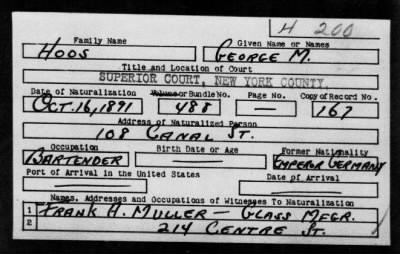 H 200
Family Name Given Name or Names
HOOS GEORGE M.
Title and Location of Court
SUPERIOR COURT, NEW YORK COUNTY
Date of Naturalization Volume or Bundle No. Page No. Copy of Record No.
OCT. 16, 1891 488 — 167
Address of Naturalized Person
108 CANAL ST.
Occupation Birth Date or Age Former Nationality
BARTENDER — EMPEROR GERMANY
Port of Arrival in the United States Date of Arrival
— —
Names, Addresses and Occupations of Witnesses To Naturalization
1 FRANK H. MULLER — GLASS MFGR.
2 214 CENTRE ST.